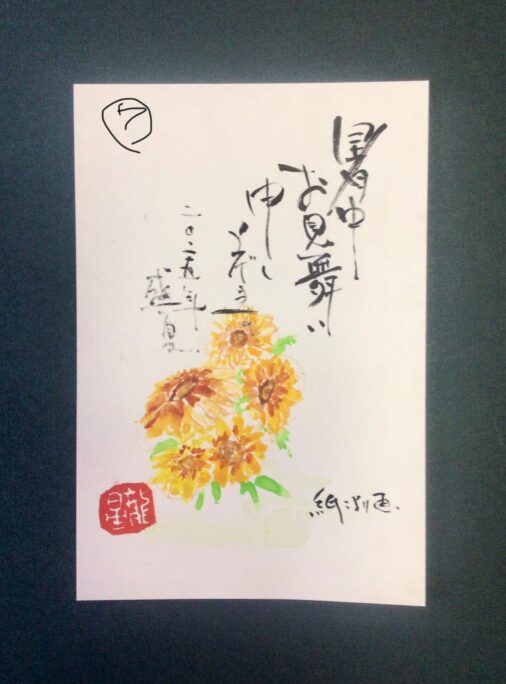 ⑦
暑中
お見舞い
申し
上げます。
二〇二五年
盛夏